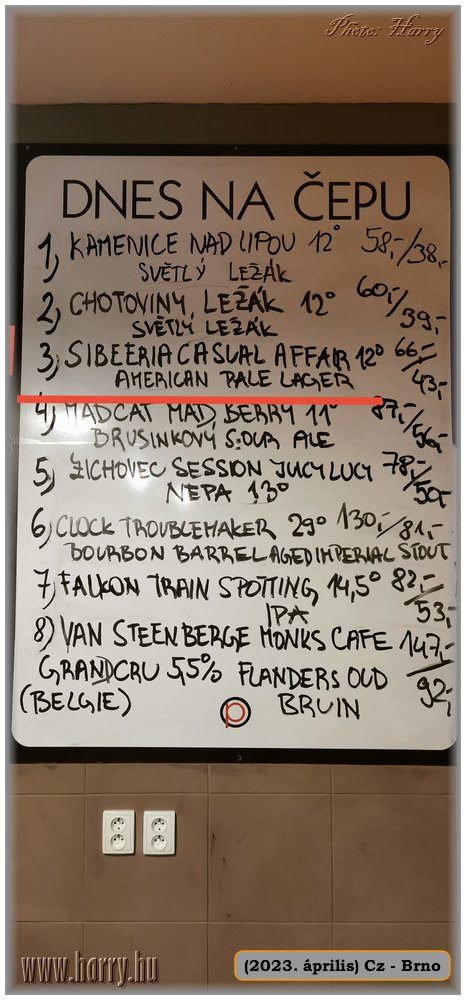 Photo: Harry
DNES NA ČEPU
1) KAMENICE NAD LIPOU 12° 58,-/38,-
SVĚTLÝ LEŽÁK
2) CHOTOVINY LEŽÁK 12° 60,-/39,-
SVĚTLÝ LEŽÁK
3) SIBEERIA CASUAL AFFAIR 12° 66,-/43,-
AMERICAN PALE LAGER
4) MADCAT MAD BERRY 11° 87,-/56,-
BRUSINKOVÝ SOUR ALE
5) ZICHOVEC SESSION JUCY LUCY 78,-/50,-
NEPA 13°
6) CLOCK TROUBLEMAKER 29° 130,-/81,-
BOURBON BARREL AGED IMPERIAL STOUT
7) FALKON TRAIN SPOTTING 14,5° 82,-/53,-
IPA
8) VAN STEENBERGE MONKS CAFE 147,-/92,-
GRANDCRU 5,5% FLANDERS OUD
(BELGIE) BRUIN
www.harry.hu
(2023. április) Cz - Brno